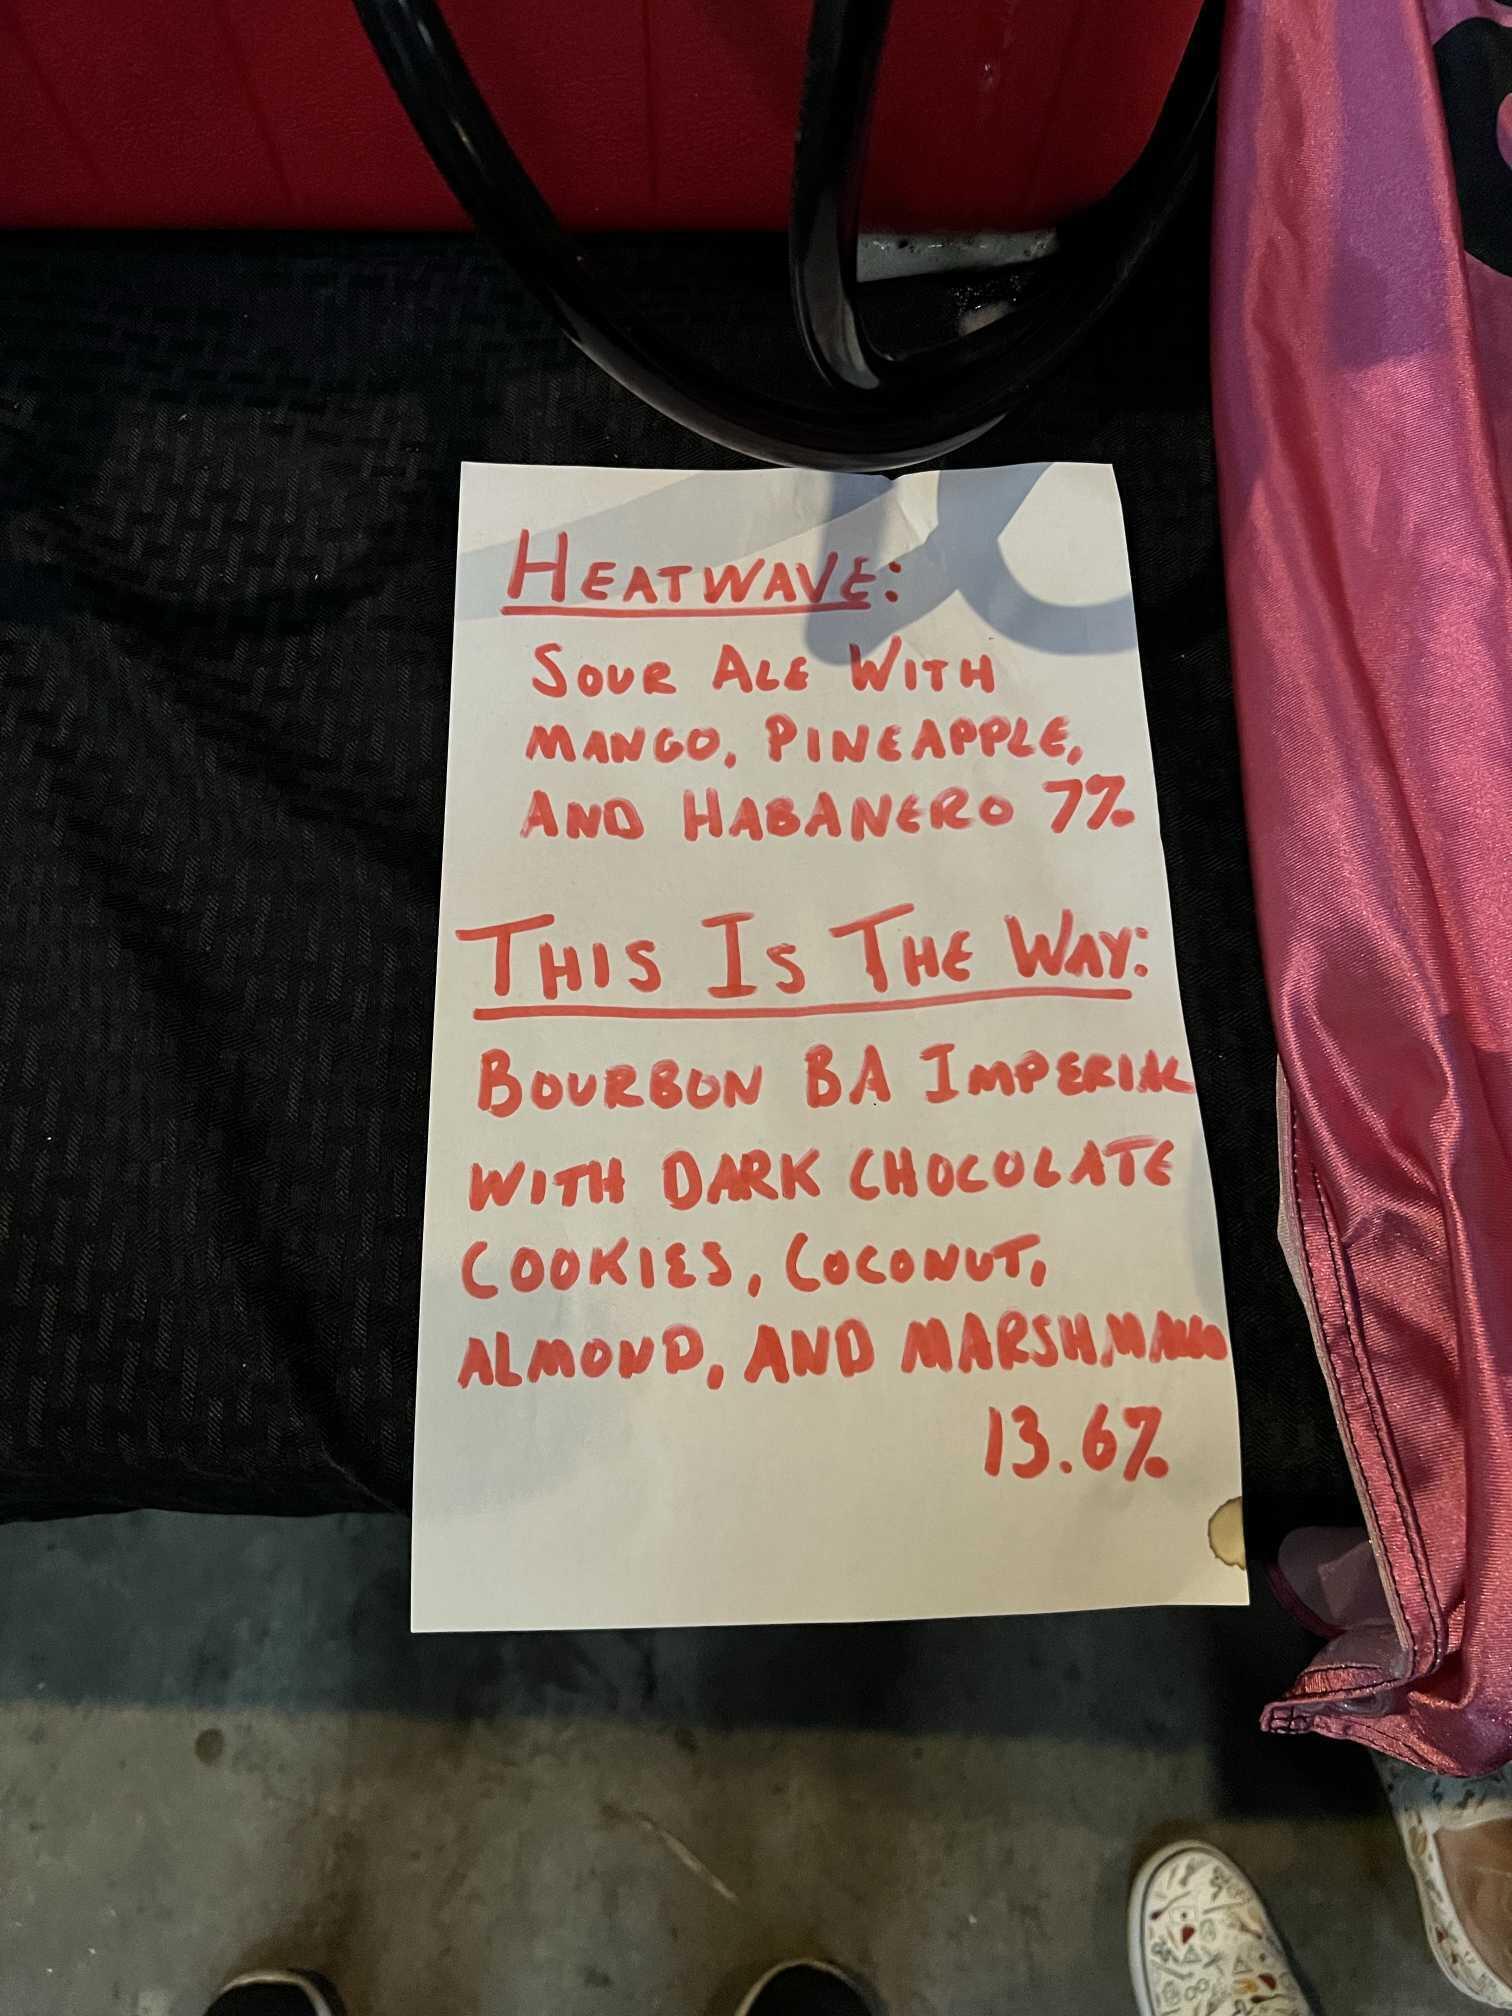 HEATWAVE:
SOUR ALE WITH
MANGO, PINEAPPLE,
AND HABANERO 7%
THIS IS THE WAY:
BOURBON BA IMPERIAL
WITH DARK CHOCOLATE
COOKIES, COCONUT,
ALMOND, AND
13.6%